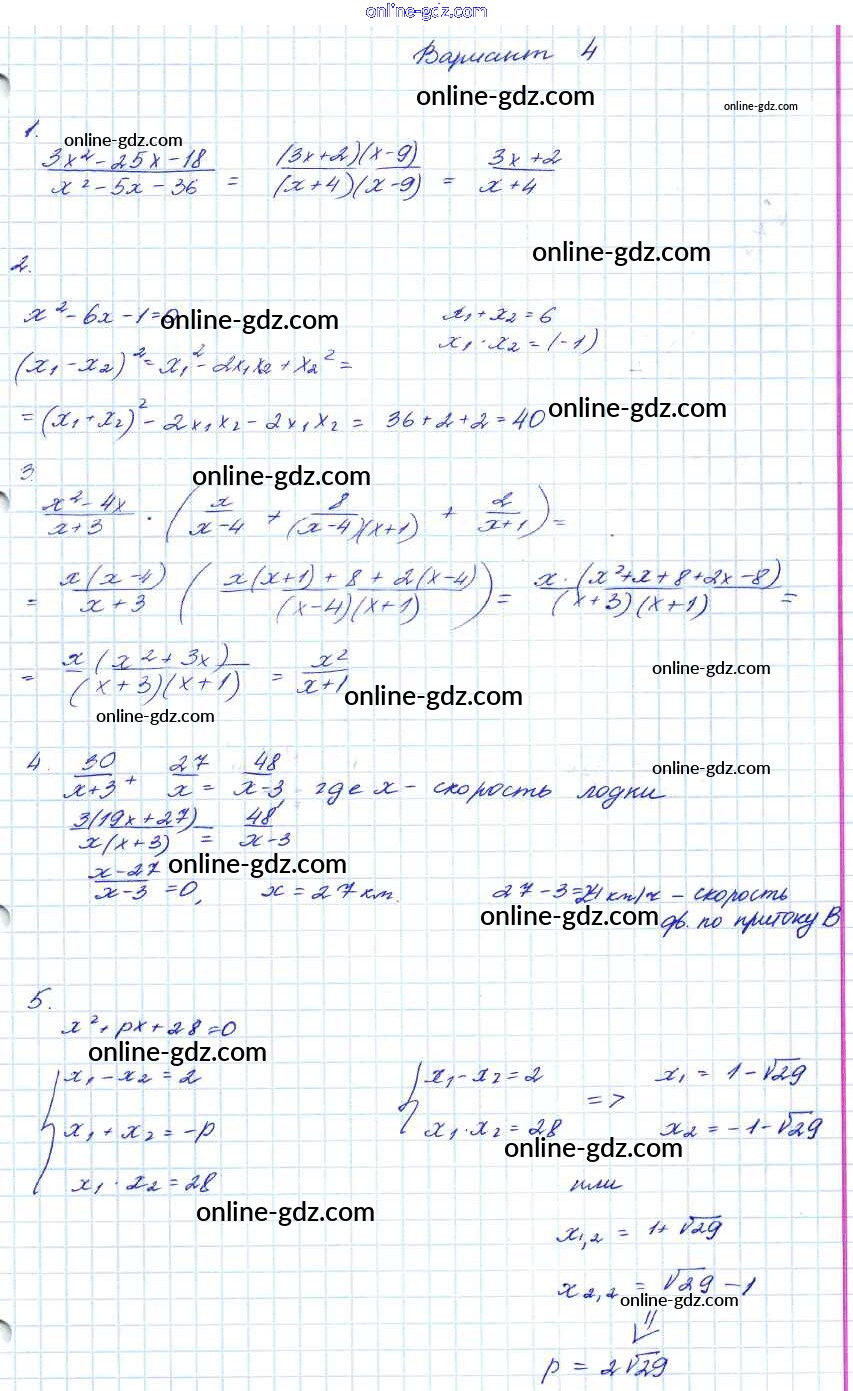 online-gdz.com
Вариант 4
online-gdz.com
online-gdz.com
1.
online-gdz.com
(3x² - 25x - 18)/(x² - 5x - 36) = ((3x+2)(x-9))/((x+4)(x-9)) = (3x+2)/(x+4)
online-gdz.com
2.
x² - 6x - 1 = 0
online-gdz.com
x₁ + x₂ = 6
x₁ · x₂ = (-1)
(x₁ - x₂)² = x₁² - 2x₁x₂ + x₂² =
= (x₁ + x₂)² - 2x₁x₂ - 2x₁x₂ = 36 + 2 + 2 = 40
online-gdz.com
3.
online-gdz.com
(x² - 4x)/(x+3) · (x/(x-4) + 8/((x-4)(x+1)) + 2/(x+1)) =
= (x(x-4))/(x+3) ((x(x+1) + 8 + 2(x-4))/((x-4)(x+1))) = (x · (x²+x+8+2x-8))/((x+3)(x+1)) =
= (x(x² + 3x))/((x+3)(x+1)) = x²/(x+1)
online-gdz.com
online-gdz.com
online-gdz.com
4. 30/(x+3) + 27/x = 48/(x-3), где x - скорость лодки
online-gdz.com
(3(19x+27))/(x(x+3)) = 48/(x-3)
online-gdz.com
(x-27)/(x-3) = 0, x = 27 км.
27 - 3 = 24 км/ч - скорость
online-gdz.com
дв. по притоку В
5.
x² + px + 28 = 0
online-gdz.com
{ x₁ - x₂ = 2
x₁ + x₂ = -p
x₁ · x₂ = 28
{ x₁ - x₂ = 2
x₁ · x₂ = 28
=>
x₁ = 1 - √29
x₂ = -1 - √29
online-gdz.com
или
online-gdz.com
x₁,₂ = 1 + √29
x₂,₂ = √29 - 1
online-gdz.com
⇓
p = 2√29